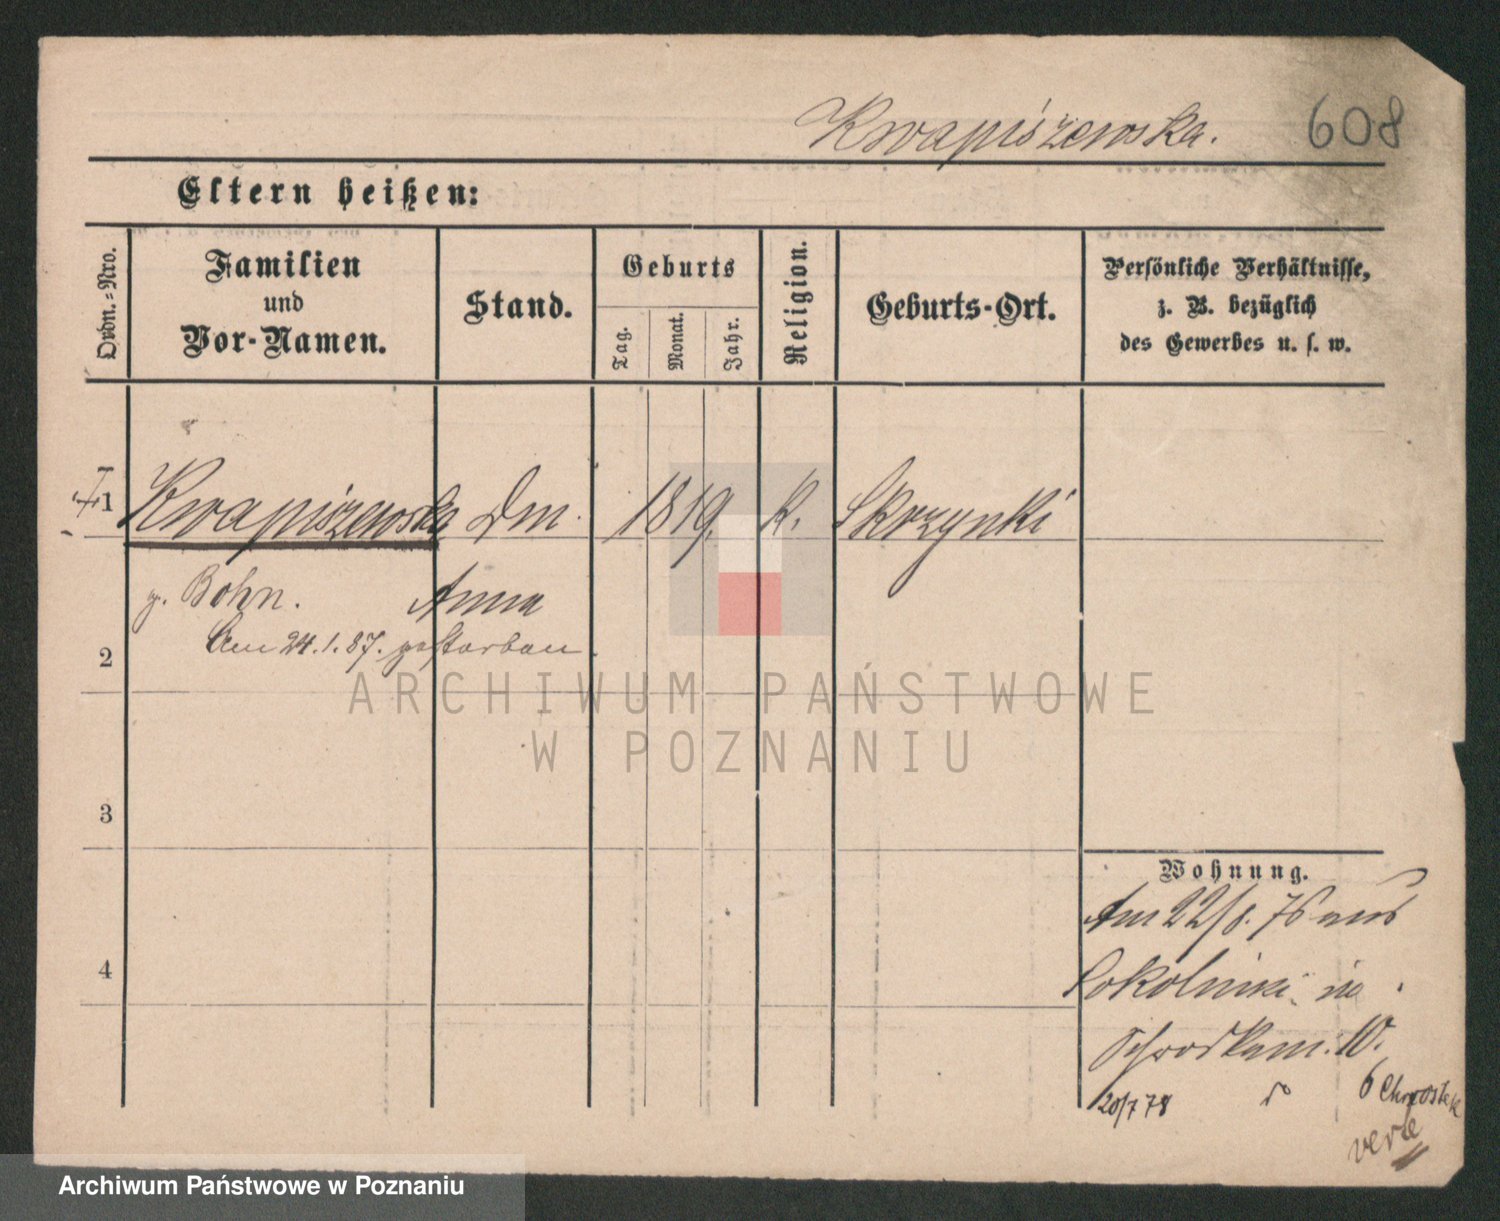 Kwapiszewska. 608
Eltern heißen:
Ordn.-Nro.
Familien
und
Vor-Namen.
Stand.
Geburts
Tag.
Monat.
Jahr.
Religion.
Geburts-Ort.
Persönliche Verhältnisse,
z. B. bezüglich
des Gewerbes u. s. w.
1 Kwapiszewska Dm. 1819. k. Skrzynki
g. Bohn. Anna
Am 24.1.87. gestorben
2
ARCHIWUM PAŃSTWOWE
W POZNANIU
3
Wohnung.
Am 22/8. 76 aus
4
Sokolniki in
Schrodkam. 10.
20/7 78
6
Archiwum Państwowe w Poznaniu